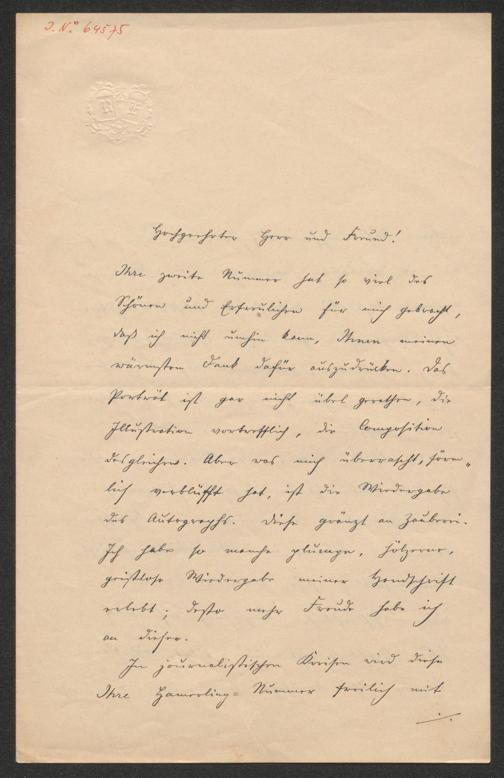 J. N.° 64575
Hochgeehrter Herr und Freund!
Ihre zweite Nummer hat so viel des
Schönen und Erfreulichen für mich gebracht,
daß ich nicht umhin kann, Ihnen meinen
wärmsten Dank dafür auszudrücken. Das
Porträt ist gar nicht übel gerathen, die
Illustration vortrefflich, die Composition
desgleichen. Aber was mich überrascht, förm-
lich verblüfft hat, ist die Wiedergabe
des Autographs. Diese gränzt an Zauberei.
Ich habe so manche plumpe, hölzerne,
geistlose Wiedergabe meiner Handschrift
erlebt; desto mehr Freude habe ich
an dieser.
In journalistischen Kreisen wird diese
Ihre Hamerling-Nummer freilich mit